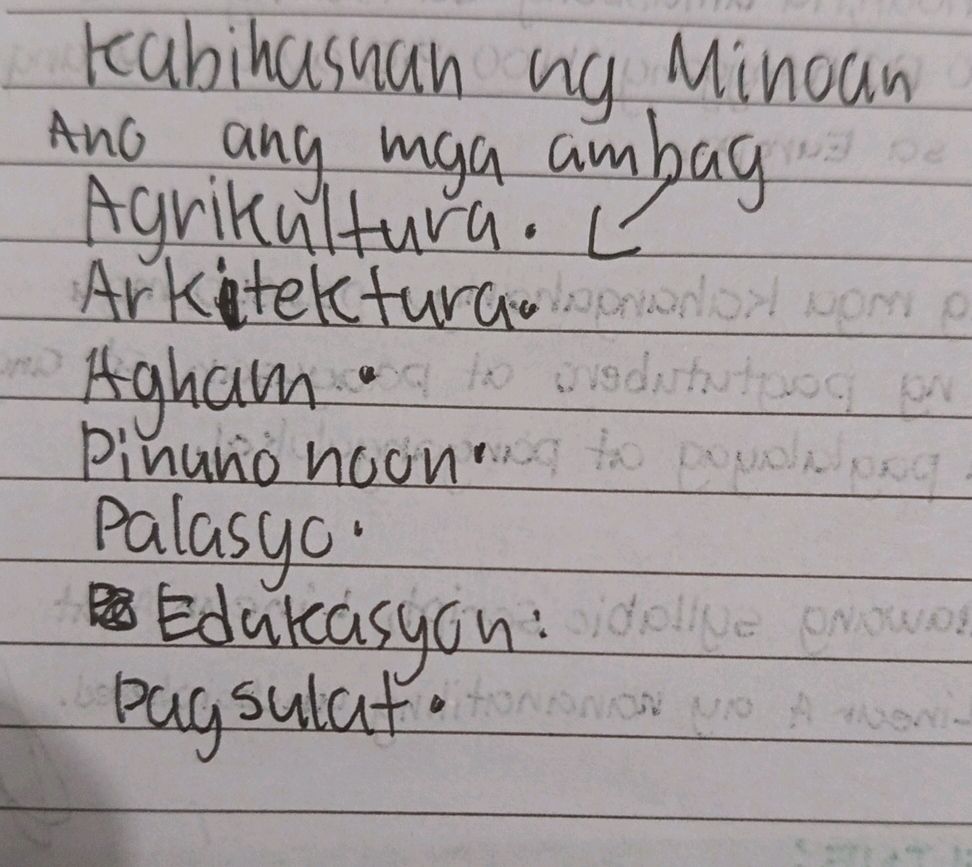 Kabihasnan ng Minoan
Ano ang mga ambag
Agrikultura.
Arkitektura.
Agham.
Pinuno noon.
Palasyo.
Edukasyon:
Pagsulat.